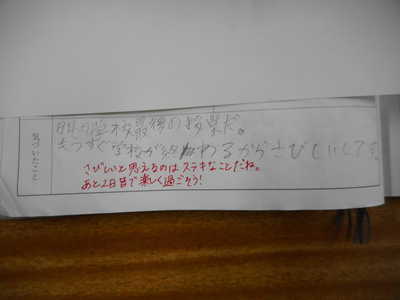 気づいたこと
明日学校最後の授業だ。
もうすぐ学校が終わるからさびしいしです。
さびしいと思えるのはステキなことだね。
あと2日目で楽しく過ごそう!